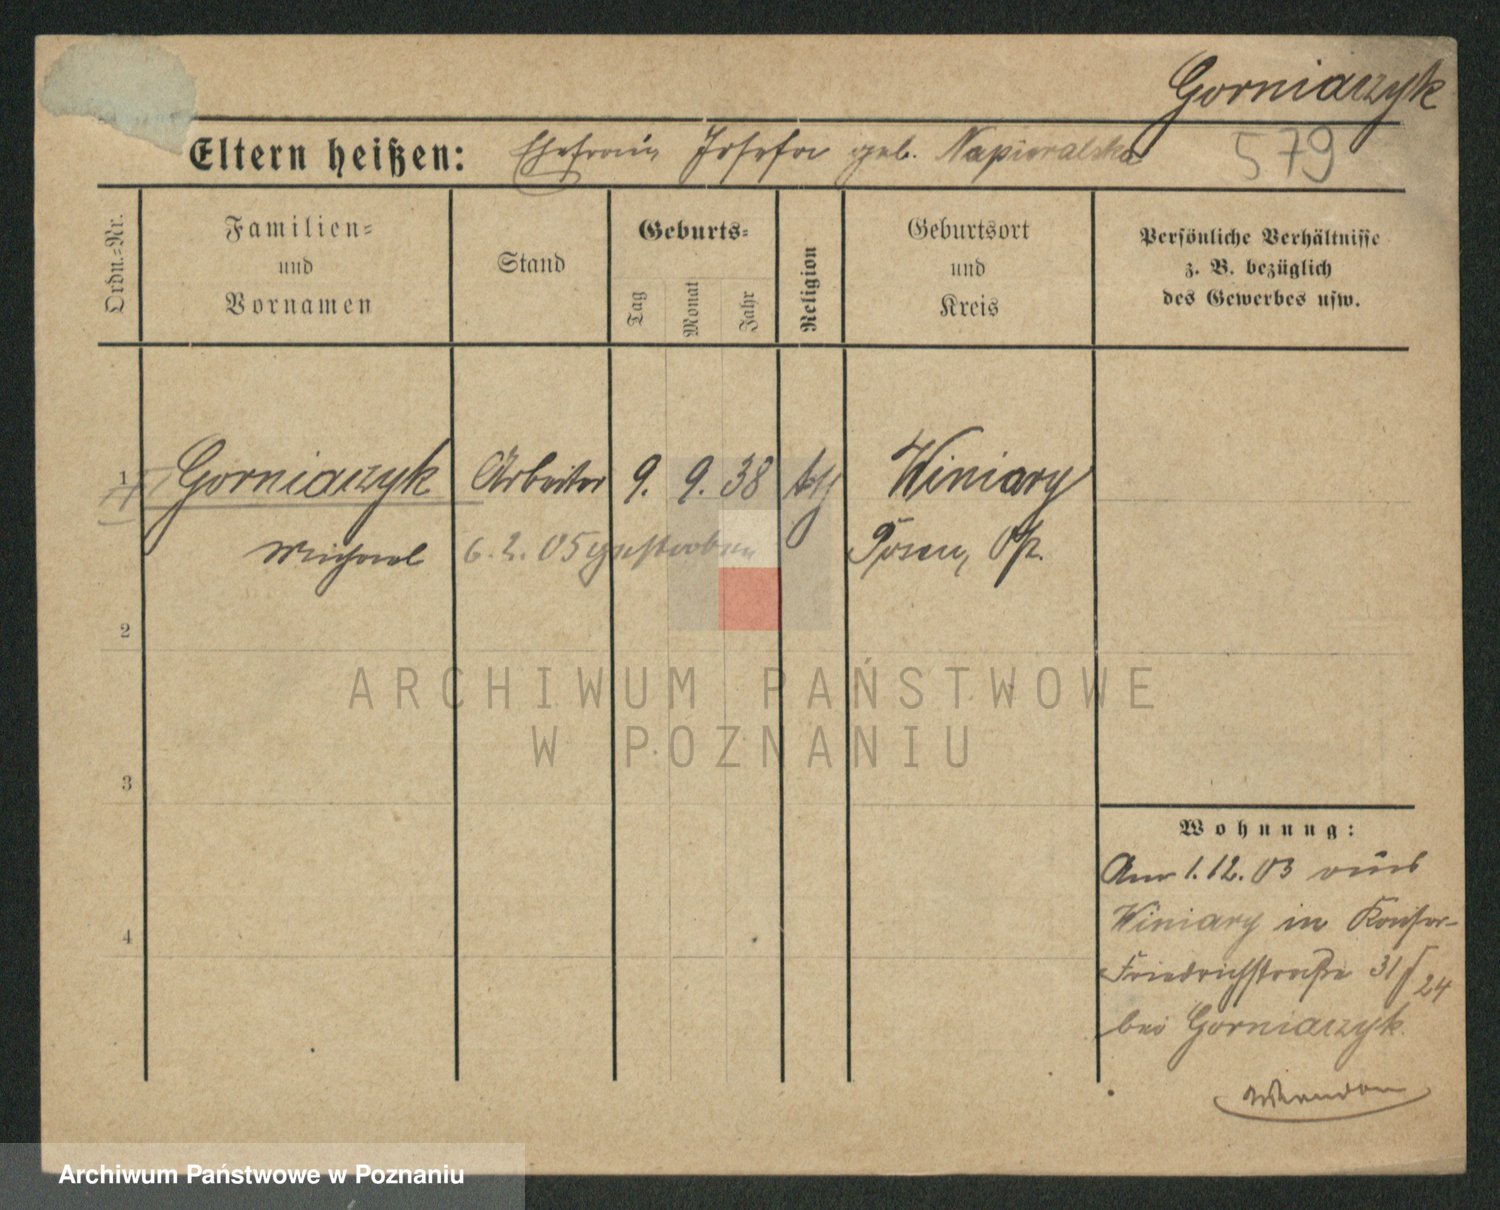 Gorniaczyk
Eltern heißen: Ehefrau Josefa geb. Napieralska 579
Ordn.-Nr.
Familien-
und
Vornamen
Stand
Geburts-
Tag
Monat
Jahr
Religion
Geburtsort
und
Kreis
Persönliche Verhältnisse
z. B. bezüglich
des Gewerbes usw.
1 Gorniaczyk Arbeiter 9. 9. 38 kth Winiary
Michael 6. 2. 05 gestorben Posen, Op.
2
3
4
ARCHIWUM PAŃSTWOWE
W POZNANIU
Wohnung:
Am 1.12.03 aus
Winiary in Kaiser-
Friedrichstraße 31/24
bei Gorniaczyk.
Archiwum Państwowe w Poznaniu